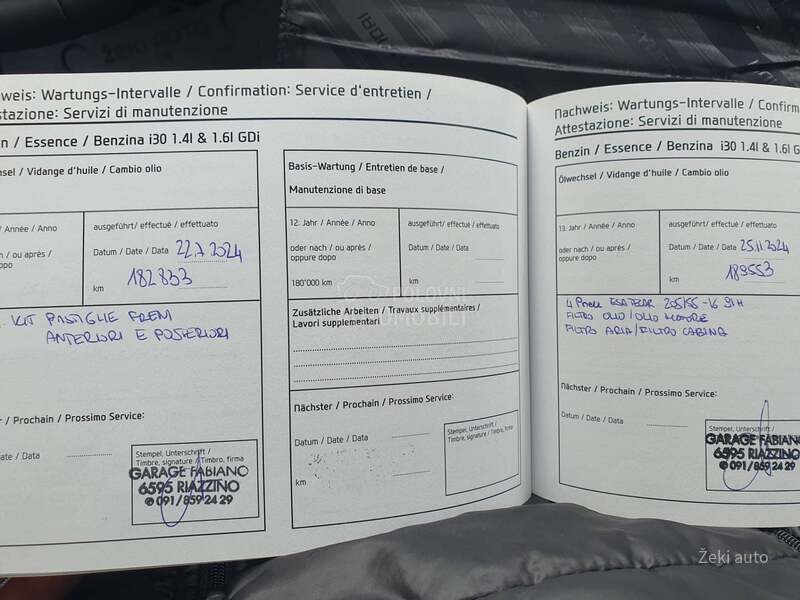 weis: Wartungs-Intervalle / Confirmation: Service d'entretien /
stazione: Servizi di manutenzione
n / Essence / Benzina i30 1.4l & 1.6l GDi
sel / Vidange d'huile / Cambio olio
/ Année / Anno
ausgeführt/ effectué / effettuato
/ ou après /
dopo
Datum / Date / Data 22.7.2024
km 182833
KIT PASTIGLIE FRENI
ANTERIORI E POSTERIORI
r / Prochain / Prossimo Service:
ate / Data
Stempel, Unterschrift /
Timbre, signature / Timbro, firma
GARAGE FABIANO
6595 RIAZZINO
✆ 091/859 24 29
Basis-Wartung / Entretien de base /
Manutenzione di base
12. Jahr / Année / Anno
ausgeführt/ effectué / effettuato
oder nach / ou après /
oppure dopo
Datum / Date / Data
180'000 km
km
POLOVNI
AUTOMOBILI
Zusätzliche Arbeiten / Travaux supplémentaires /
Lavori supplementari
Nächster / Prochain / Prossimo Service:
Datum / Date / Data
km
Stempel, Unterschrift /
Timbre, signature / Timbro, firma
Nachweis: Wartungs-Intervalle / Confirm
Attestazione: Servizi di manutenzione
Benzin / Essence / Benzina i30 1.4l & 1.6l G
Ölwechsel / Vidange d'huile / Cambio olio
13. Jahr / Année / Anno
ausgeführt/ effectué / effettuato
oder nach / ou après /
oppure dopo
Datum / Date / Data 25.11.2024
km 189553
4 205/55-16 91H
FILTRO OLIO/OLIO MOTORE
FILTRO ARIA/FILTRO CABINA
Nächster / Prochain / Prossimo Service:
Datum / Date / Data
Stempel, Unterschrift /
GARAGE FABIANO
6595 RIAZZINO
✆ 091/859 24 29
Žeki auto